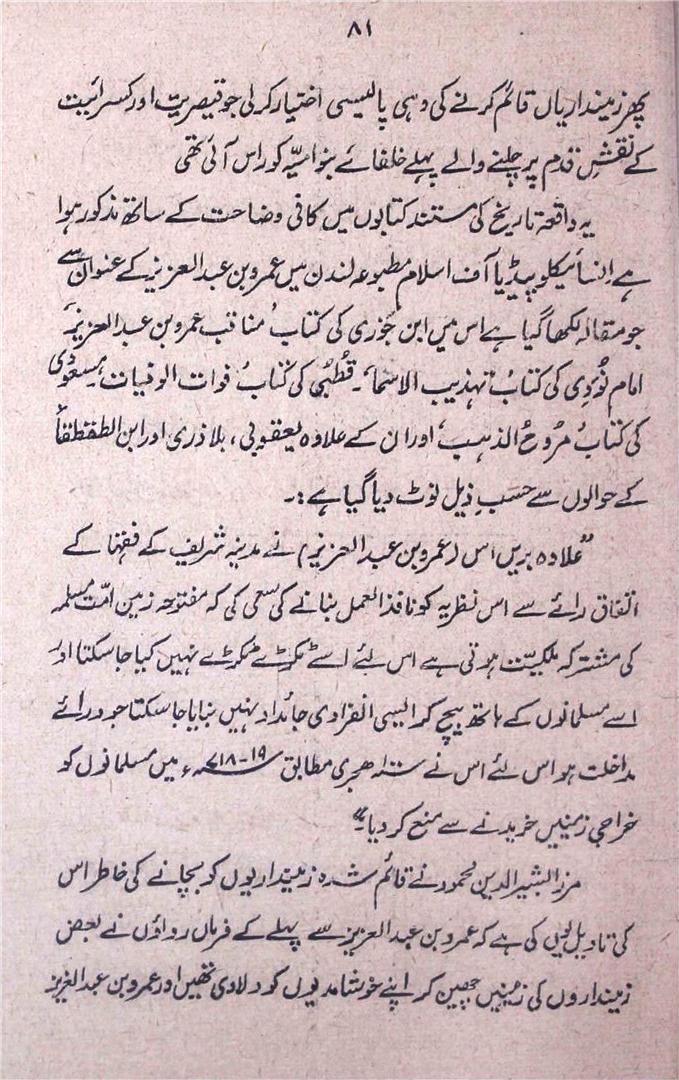 ۸۱
پھر زمینداریاں قائم کرنے کی وہی پالیسی اختیار کر لی جو قیصریت اور کسرائیت
کے نقشِ قدم پر چلنے والے پہلے خلفائے بنو امیّہ کو راس آئی تھی
یہ واقعہ تاریخ کی مستند کتابوں میں کافی وضاحت کے ساتھ مذکور ہوا
ہے اِنسائیکلوپیڈیا آف اسلام مطبوعہ لندن میں عمرو بن عبد العزیز کے عنوان سے
جو مقالہ لکھا گیا ہے اس میں ابن جوزی کی کتاب ’مناقب عمرو بن عبد العزیز‘
امام نُوَوِی کی کتاب ’تہذیب الاسما‘۔ قُطبُی کی کتاب فوات الوفیات، مسعودی
کی کتاب ’مُروجُ الذہب‘ اور ان کے علاوہ یعقوبی، بلاذری اور ابن الطقطقا
کے حوالوں سے حسَبِ ذیل نوٹ دیا گیا ہے :۔
”علاوہ بریں اس (عمرو بن عبد العزیز) نے مدینہ شریف کے فقہا کے
اتفاق رائے سے اس نظریہ کو نافذ العمل بنانے کی سعی کی کہ مفتوحہ زمین امّت مسلمہ
کی مشترکہ ملکیّت ہوتی ہے اس لئے اسے ٹکڑے ٹکڑے نہیں کیا جا سکتا اور
اسے مسلمانوں کے ہاتھ بیچ کر ایسی انفرادی جائداد نہیں بنایا جا سکتا جو ورائے
مداخلت ہو اس لئے اس نے ۱۰۰ ھجری مطابق ۱۹-۷۱۸ء میں مسلمانوں کو
خراجی زمینیں خریدنے سے منع کر دیا۔“
مرزا بشیر الدین محمود نے قائم شدہ زمینداریوں کو بچانے کی خاطر اس
کی تاویل یوں کی ہے کہ عمرو بن عبد العزیز سے پہلے کے فرماں رواؤں نے بعض
زمینداروں کی زمینیں چھین کر اپنے خوشامدیوں کو دلا دی تھیں اور عمرو بن عبد العزیز